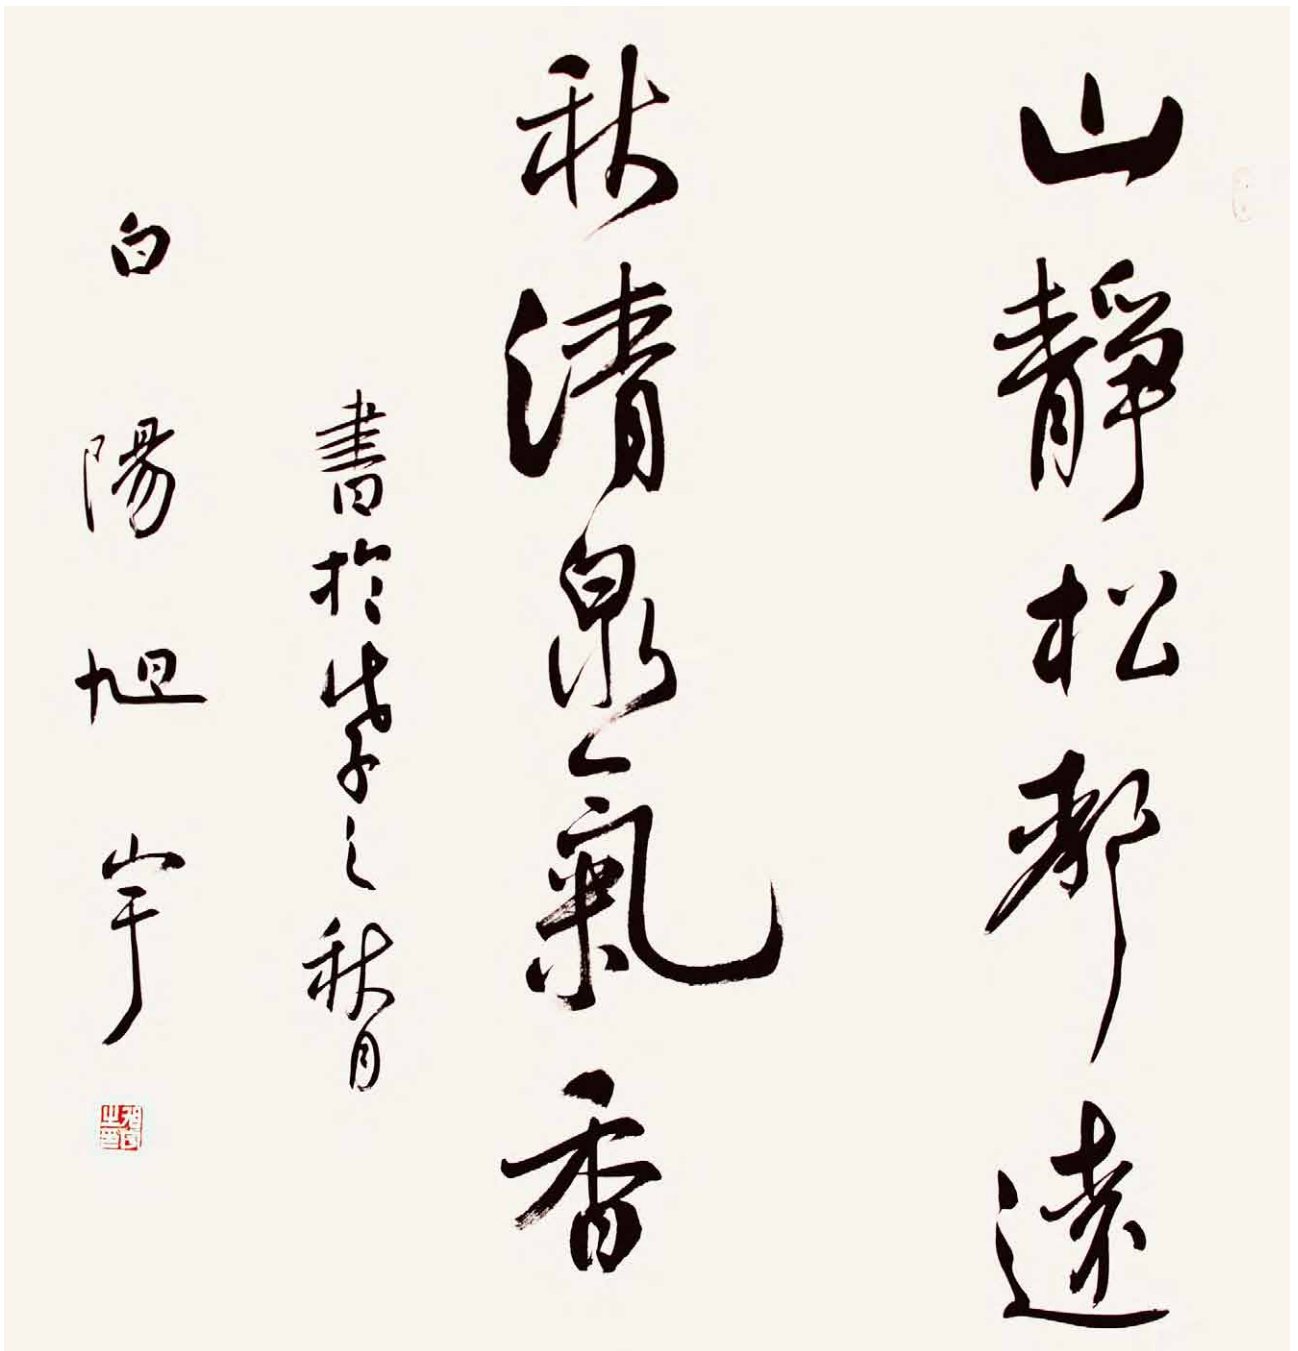 山靜松聲遠
秋清泉氣香
書於戊子之秋月
白陽旭宇